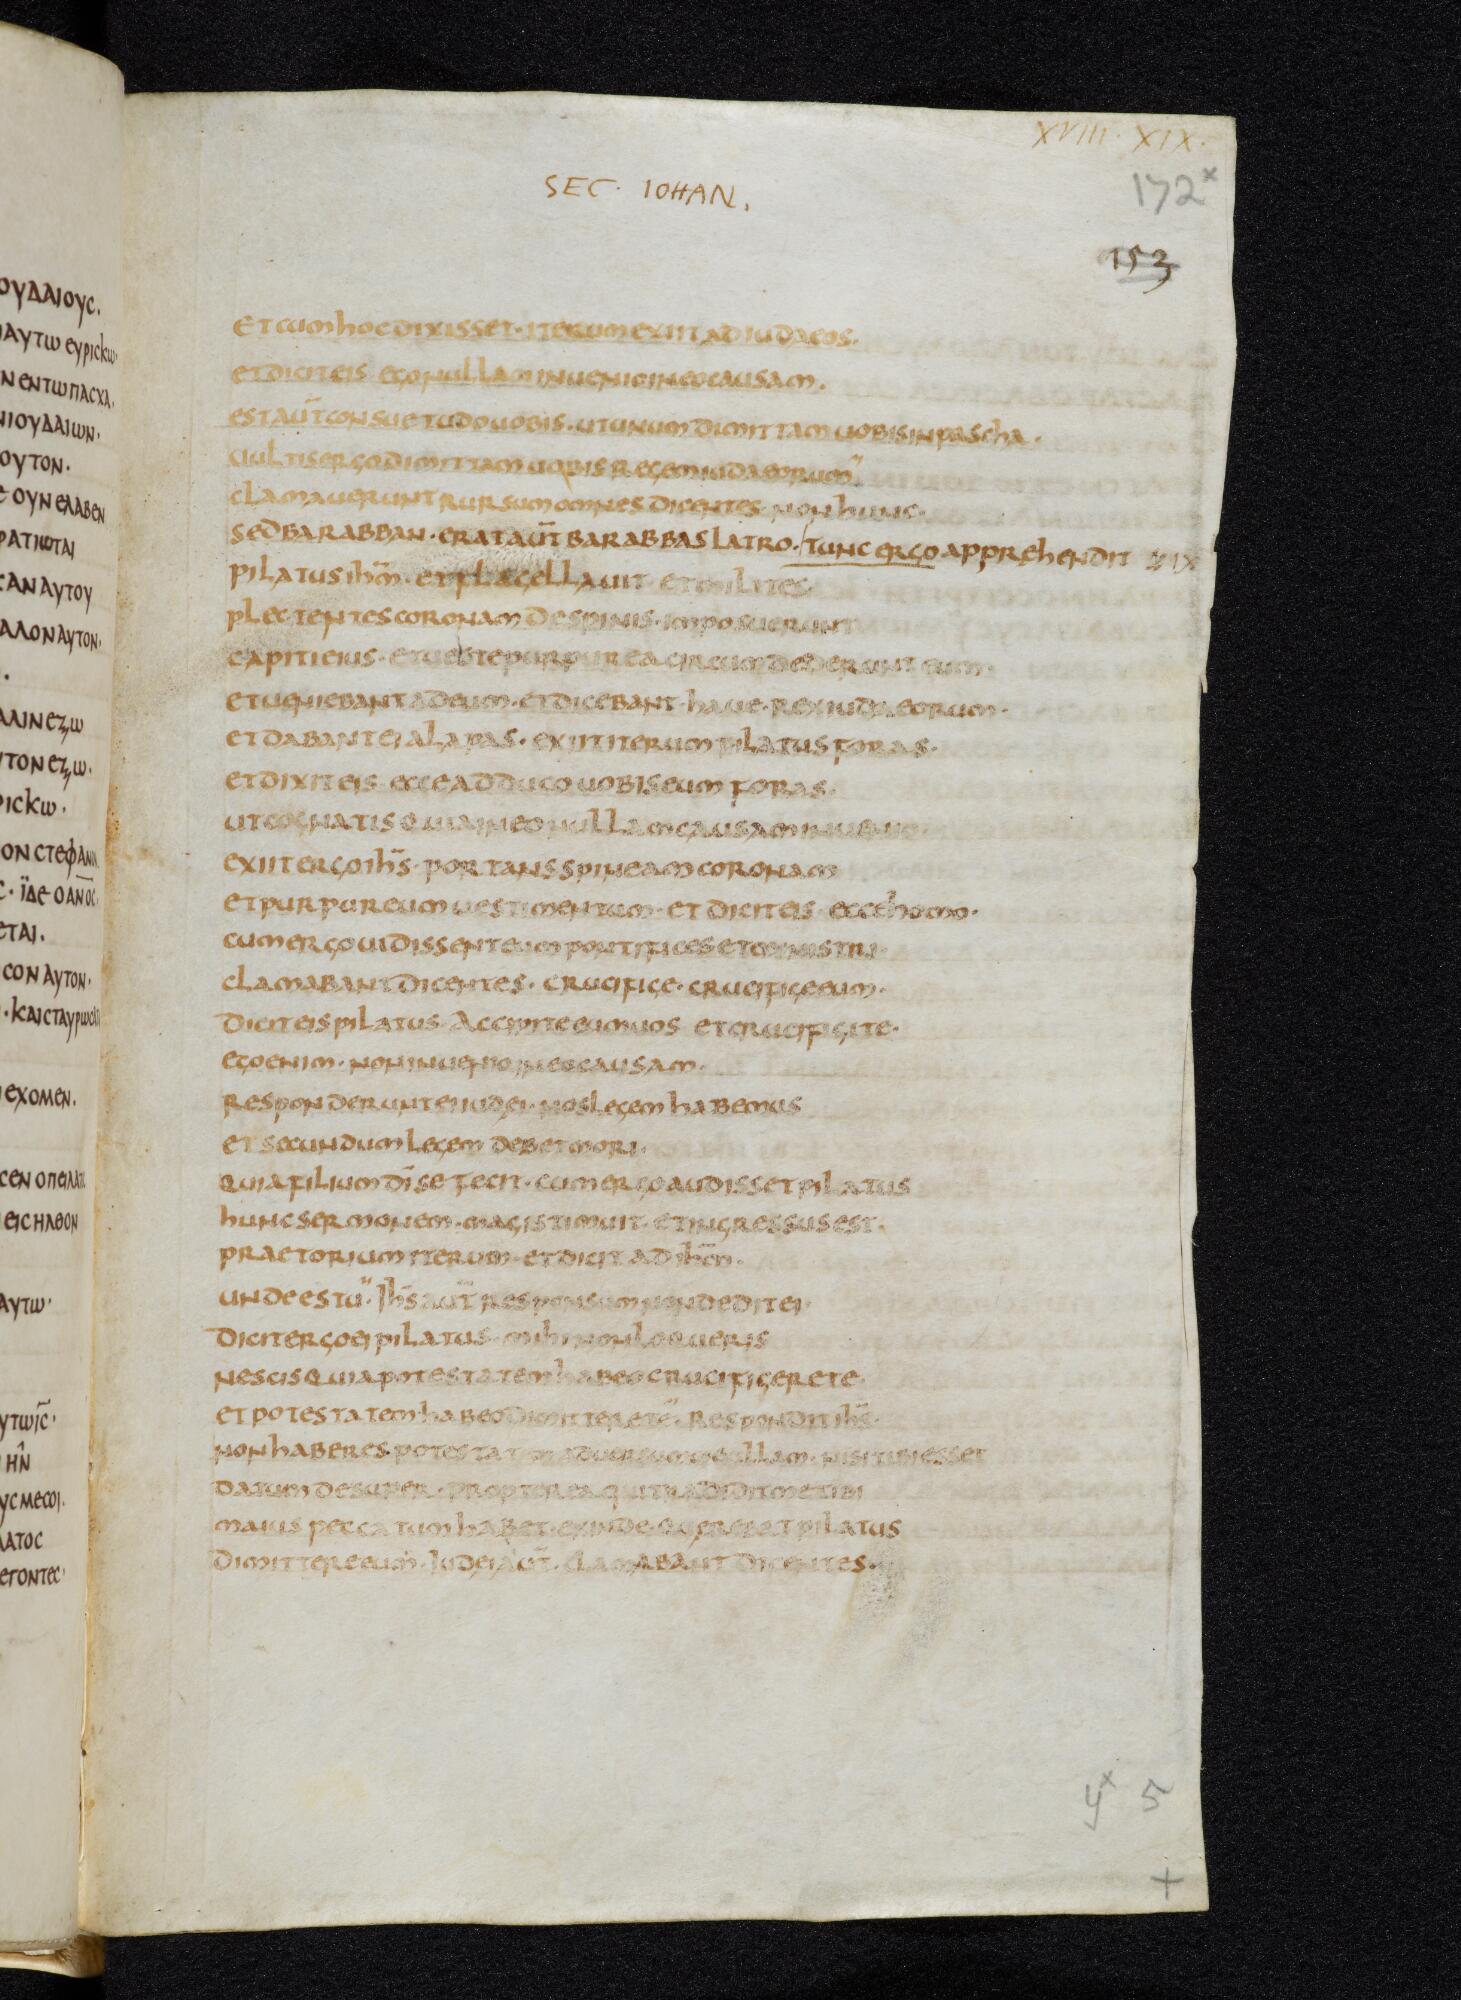 XVIII · XIX·
172ˣ
SEC · IOHAN.
153
ΟΥΔΑΙΟΥC.
ΑΥΤΩ ΕΥΡΙCΚΩ·
Ν ΕΝ ΤΩ ΠΑCΧΑ.
ΙΟΥΔΑΙΩΝ·
ΟΥΤΟΝ·
ΟΥΝ ΕΛΑΒΕΝ
ΡΑΤΙΩΤΑΙ
CΑΝ ΑΥΤΟΥ
ΑΛΟΝ ΑΥΤΟΝ·
ΑΛΙΝ ΕΞΩ
ΤΟΝ ΕΞΩ.
ΡΙCΚΩ·
ΟΝ CΤΕΦΑΝΙΝ
C· ΪΔΕ Ο ΑΝΟC.
ΕΤΑΙ.
CΟΝ ΑΥΤΟΝ·
· ΚΑΙ CΤΑΥΡΩCΑΤΕ
ΕΧΟΜΕΝ.
CΕΝ Ο ΠΕΙΛΑΤ
ΕΙCΗΛΘΟΝ
ΑΥΤΩ·
ΥΤΩ ΙC·
ΗΝ
ΥC ΜΕ CΟΙ.
ΛΑΤΟC
ΕΓΟΝΤΕC·
et cum hoc dixisset · iterum exiit ad iudaeos·
et dicit eis ego nullam inuenio in eo causam.
est aut̄ consuetudo uobis · ut unum dimittam uobis in pascha ·
uultis ergo dimittam uobis regem iudaeorum
clamauerunt rursum omnes dicentes · non hunc ·
sed barabban · erat aut̄ barabbas latro · tunc ergo apprehendit XIX
pilatus ihm̄ · et flagellauit et milites
plectentes coronam de spinis · imposuerunt
capiti eius · et ueste purpurea circumdederunt eum ·
et ueniebant ad eum · et dicebant · haue · rex iudaeorum ·
et dabant ei alapas · exiit iterum pilatus foras ·
et dixit eis ecce adduco uobis eum foras.
ut cognatis quia in eo nullam causam inuenio
exiit ergo ihs̄ · portans spineam coronam
et purpureum uestimentum · et dicit eis · ecce homo ·
cum ergo uidissent eum pontifices et ministri
clamabant dicentes · crucifige · crucifige eum ·
dicit eis pilatus Accipite eum uos et crucifigite ·
ego enim · non inuenio in eo causam ·
responderunt ei iudei · nos legem habemus
et secundum legem debet mori ·
quia filium dī se fecit · cum ergo audisset pilatus
hunc sermonem · magis timuit · et ingressus est ·
praetorium iterum · et dicit ad ihm̄ ·
unde es tu · Ihs̄ aut̄ responsum non dedit ei ·
dicit ergo ei pilatus · mihi non loqueris
nescis quia potestatem habeo crucifigere te
et potestatem habeo dimittere te · Respondit ihs̄ ·
non haberes potestatem aduersum me ullam · nisi tibi esset
datum desuper · propterea qui tradidit me tibi
maius peccatum habet · exinde querebat pilatus
dimittere eum · Iudei aut̄ · clamabant dicentes ·
yˣ 5
+